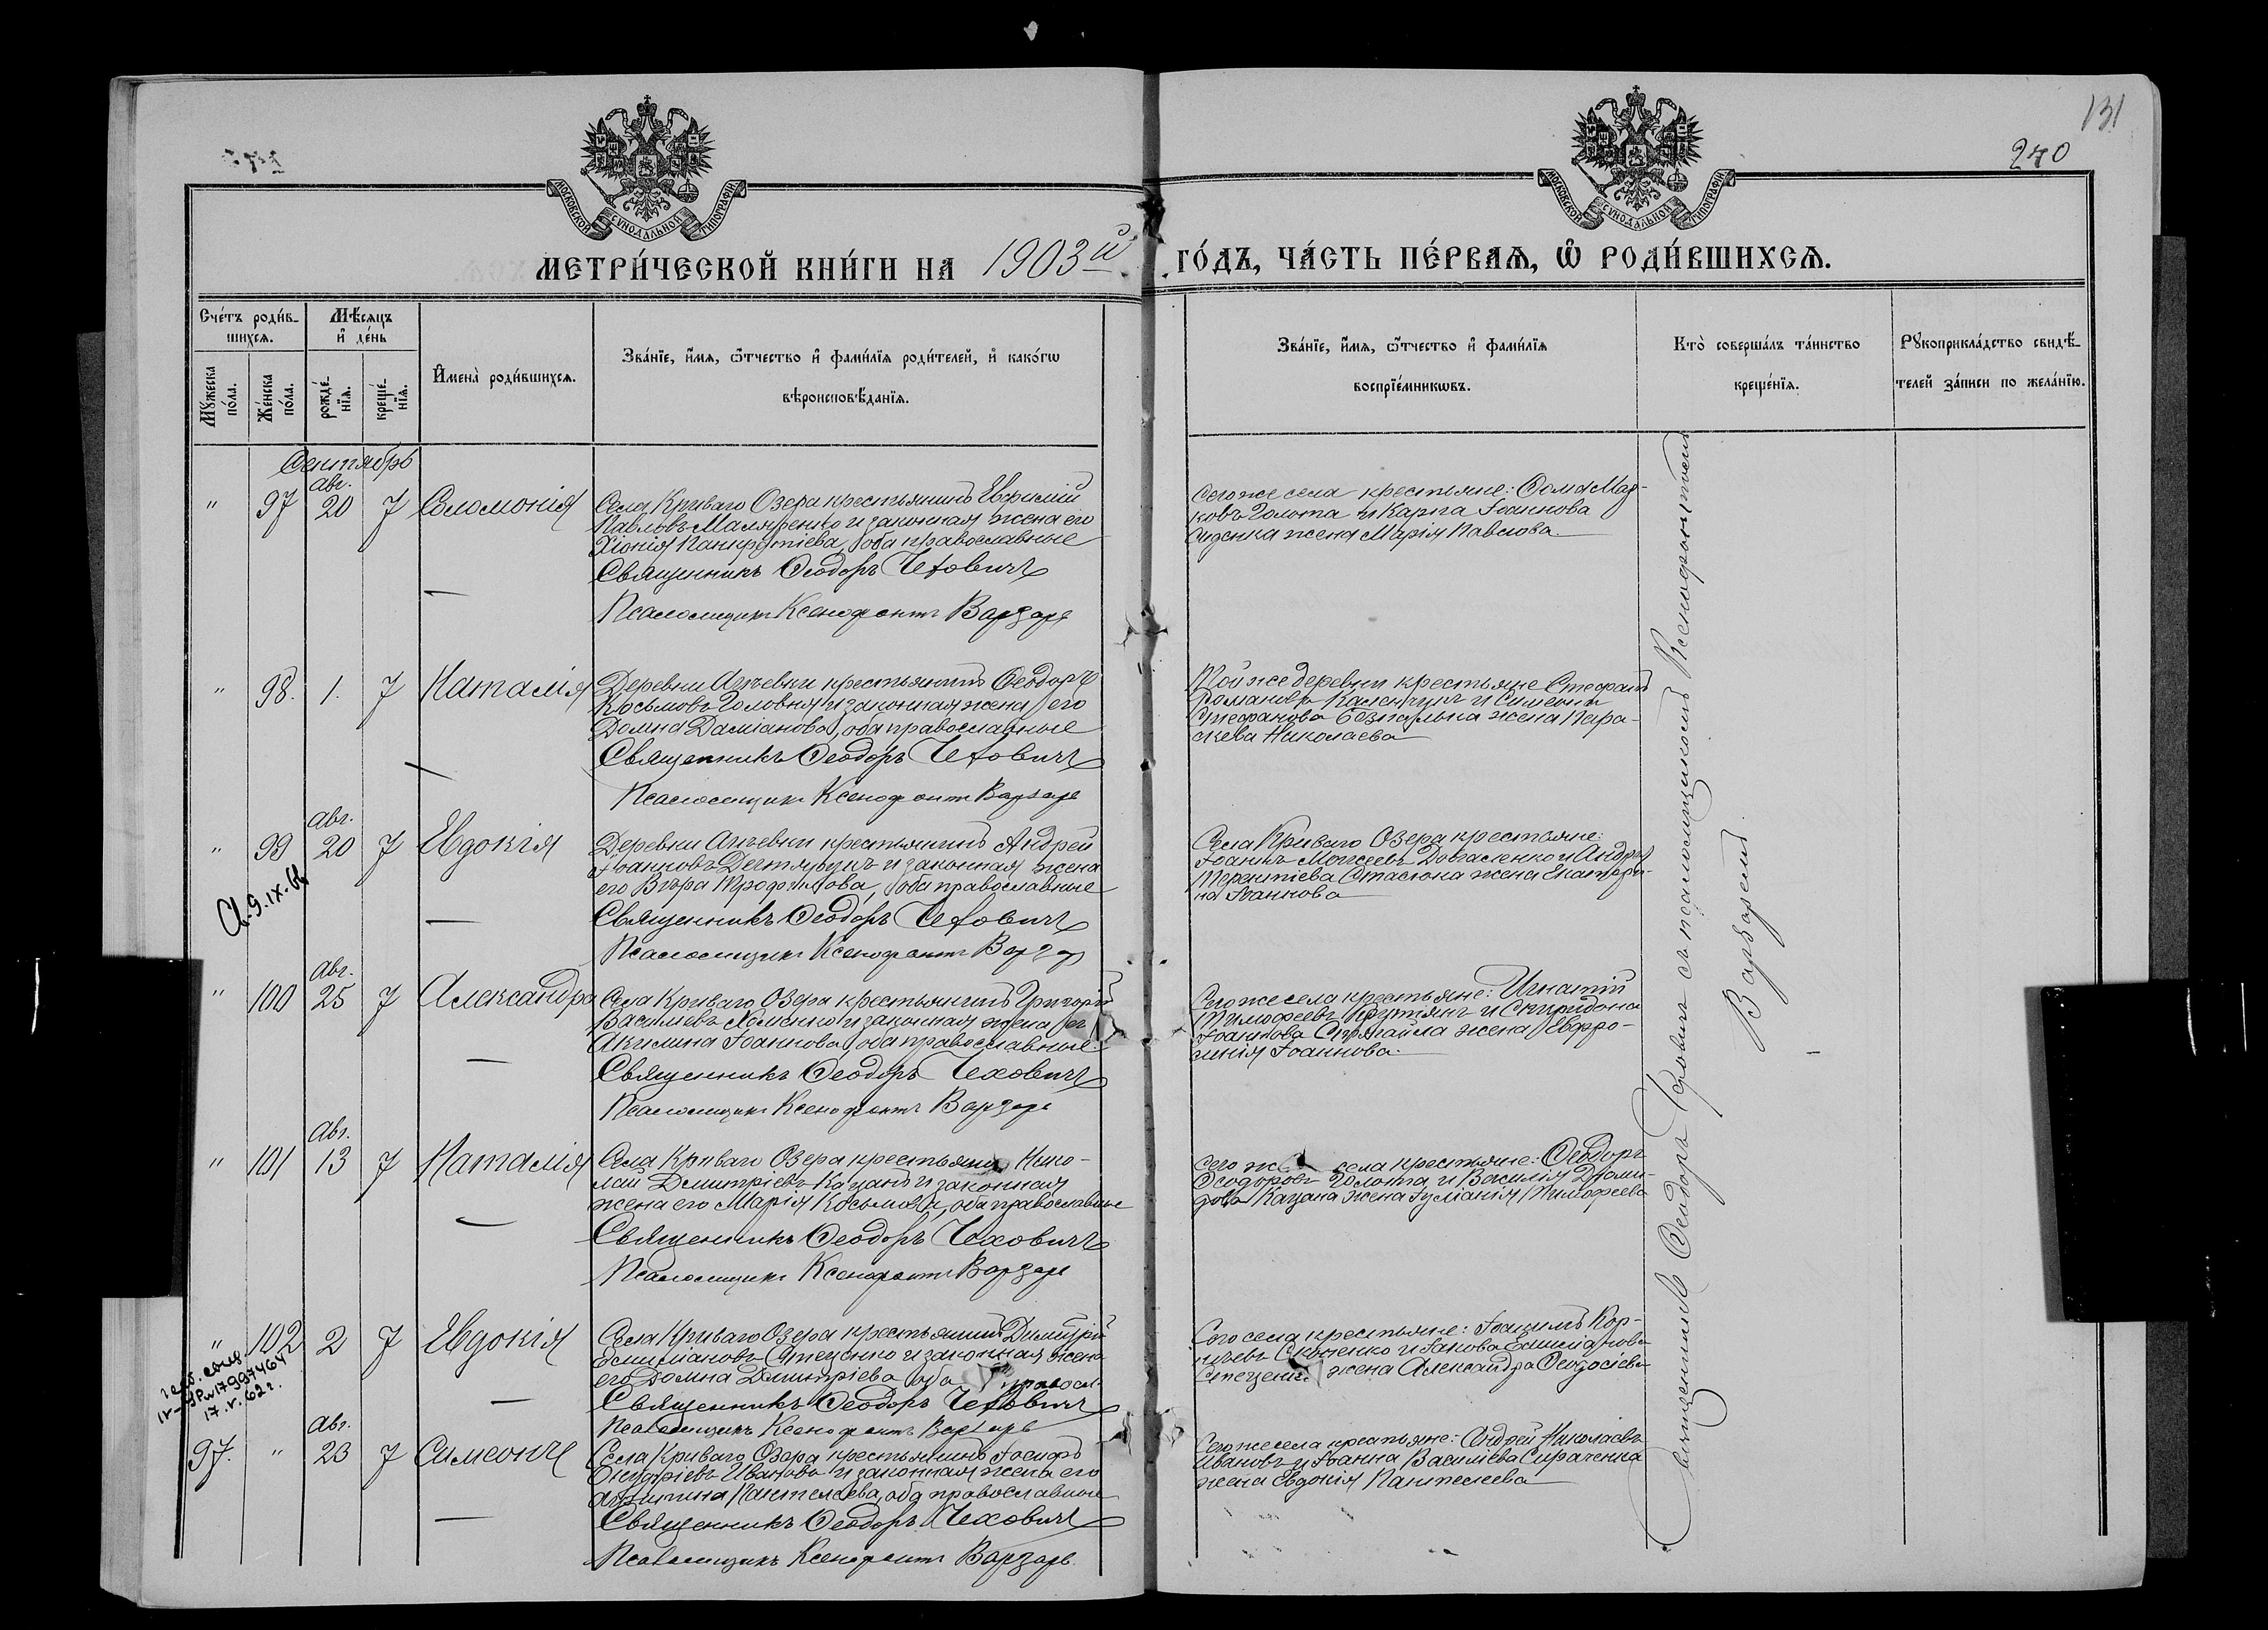 131
240
МОСКОВСКОЙ СѴНОДАЛЬНОЙ ТИПОГРАФІИ
МОСКОВСКОЙ СѴНОДАЛЬНОЙ ТИПОГРАФІИ
МЕТРИ́ЧЕСКОЙ КНИ́ГИ НА 1903й ГО́ДЪ, ЧА́СТЬ ПЕ́РВАѦ, Ѡ҆ РОДИ́ВШИХСѦ.
Сче́тъ роди́в-
шихсѧ.
Мѣ́сѧцъ
и҆ де́нь
Мꙋ́жеска
по́ла.
Же́нска
по́ла.
рожде́-
нїѧ.
креще́-
нїѧ.
И҆мена̀ роди́вшихсѧ.
Зва́нїе, и҆́мѧ, ѻ҆́тчество и҆ фами́лїѧ роди́телей, и҆ како́гѡ
вѣроисповѣ́данїѧ.
Зва́нїе, и҆́мѧ, ѻ҆́тчество и҆ фами́лїѧ
воспрїе́мникѡвъ.
Кто̀ соверша́лъ та́инство
креще́нїѧ.
Рꙋкоприкла́дство свидѣ́-
телей за́писи по жела́нїю.
Сентябрь
Авг.
" 97 20 7 Соломонія
Села Криваго Озера крестьянинъ Евфимій
Павловъ Маляренко и законная жена его
Хіонія Панкратіева, оба православные
Священникъ Ѳеодоръ Чеховичъ
Псаломщикъ Ксенофонтъ Варзарь
Сего же села крестьяне: Ѳома Мар-
ковъ Голота и Карпа Іоаннова
жена Марія Павлова.
" 98. 1. 7 Наталія
Деревни крестьянинъ Ѳеодоръ
Косьмовъ Головня и законная жена его
Домна Даміанова, оба православные
Священникъ Ѳеодоръ Чеховичъ
Псаломщикъ Ксенофонтъ Варзарь
Той же деревни крестьяне Стефанъ
Романовъ и Симеона
Стефанова жена Пара-
скева Николаева
Авг.
" 99 20 7 Евдокія
Св. 9.IX.
Деревни крестьянинъ Андрей
Іоанновъ и законная жена
его Вѣра Трофимова, оба православные
Священникъ Ѳеодоръ Чеховичъ
Псаломщикъ Ксенофонтъ
Села Криваго Озера крестьяне:
Іоаннъ Моисеевъ и Андрея
Терентіева Стасюка жена Екатери-
на Іоаннова
Авг.
" 100 25 7 Александра
Села Криваго Озера крестьянинъ Григорій
Васильевъ Хоменко и законная жена его
Акилина Іоаннова, оба православные.
Священникъ Ѳеодоръ Чеховичъ
Псаломщикъ Ксенофонтъ Варзарь
Сего же села крестьяне: Игнатій
Тимофеевъ и Спиридона
Іоаннова жена Евфро-
синія Іоаннова.
Авг.
" 101 13 7 Наталія
Села Криваго Озера крестьянинъ Нико-
лай Димитріевъ Кацанъ и законная
жена его Марія Косьмова, оба православные
Священникъ Ѳеодоръ Чеховичъ
Псаломщикъ Ксенофонтъ Варзарь
Сего же села крестьяне: Ѳеодоръ
Ѳеодоровъ Голота и Василія
Кацана жена Іуліанія Тимофеева
" 102 2 7 Евдокія
17.V.62г.
Села Криваго Озера крестьянинъ Димитрій
Емиліановъ Стеценко и законная жена
его Домна Димитріева
Священникъ Ѳеодоръ Чеховичъ
Псаломщикъ Ксенофонтъ Варзарь
Сего села крестьяне: Іоакимъ Кор-
и Іакова Емиліанова
жена Александра Ѳеодосіева
Авг.
97. " 23 7 Симеонъ
Села Криваго Озера крестьянинъ Іосифъ
Онуфріевъ Ивановъ и законная жена его
Пантелеева, оба православные
Священникъ Ѳеодоръ Чеховичъ
Псаломщикъ Ксенофонтъ Варзарь
Сего же села крестьяне: Андрей Николаевъ
Ивановъ и Іоанна Васильева
жена Евдокія Пантелеева
Священникъ Ѳеодоръ Чеховичъ съ псаломщикомъ Ксенофонтомъ
Варзаремъ